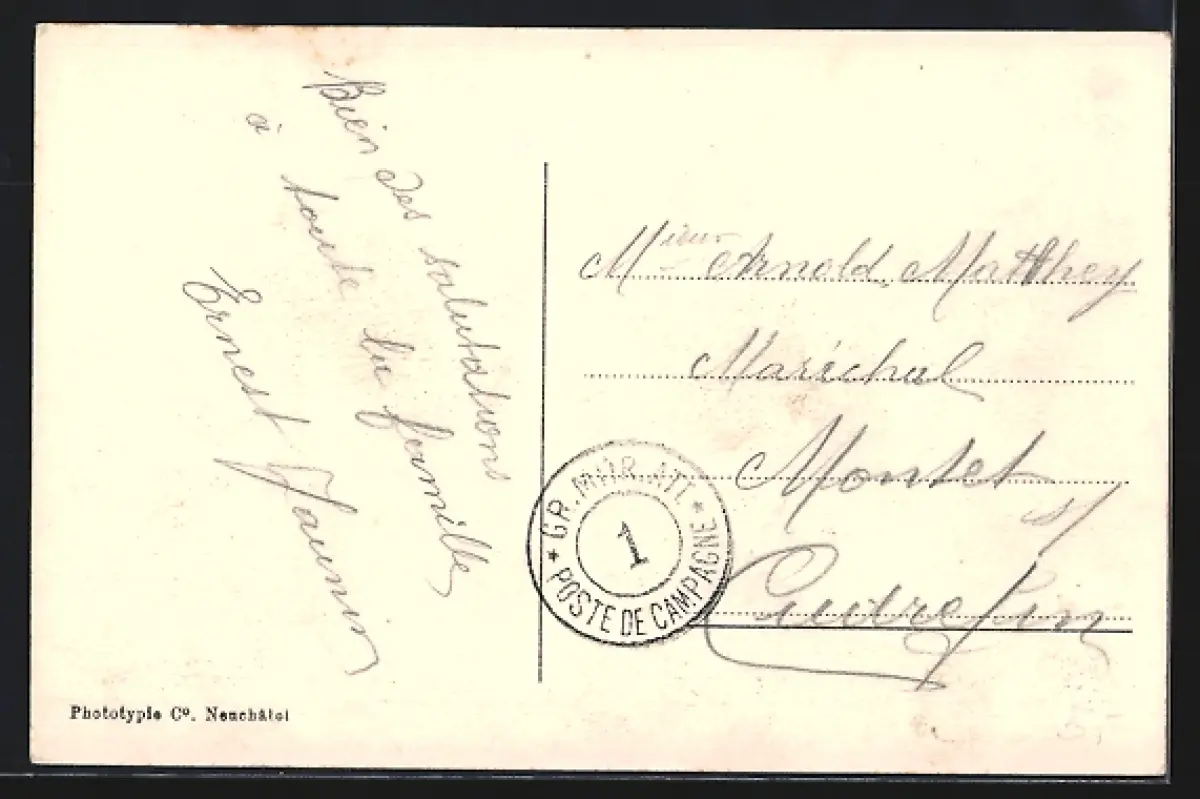 Bien des salutations
à toute la famille
Ernest Jaunin
Mieur Arnold Matthey
Maréchal
Montet
s/
Cudrefin
* GR. MITR. ATT. *
POSTE DE CAMPAGNE
1
Phototypie Co. Neuchâtel